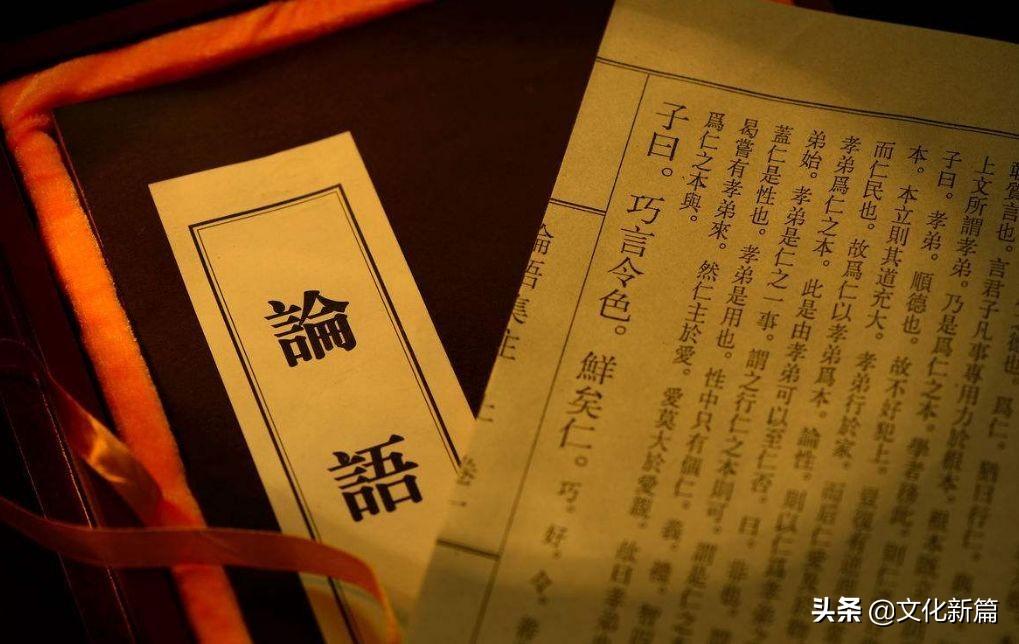 質言也。言君子凡事專用力於根本。根本既立
上文所謂孝弟。乃是爲仁之本。學者務此。則仁
子曰。孝弟。順德也。故不好犯上。豈復有逆理
本。本立則其道充大。孝弟行於家。而后仁愛及
而仁民也。故爲仁以孝弟爲本。論性。則以仁爲孝弟之
孝弟爲仁之本。此是由孝弟可以至仁否。曰。非也。謂
弟始。孝弟是仁之一事。謂之行仁之本則可。謂是仁之
蓋仁是性也。孝弟是用也。性中只有個仁。義。禮。智
曷嘗有孝弟來。然仁主於愛。愛莫大於愛親。故曰孝弟
爲仁之本與。
子曰。巧言令色。鮮矣仁。巧。好。令。善
論語集注 卷一
論語
头条 @文化新篇